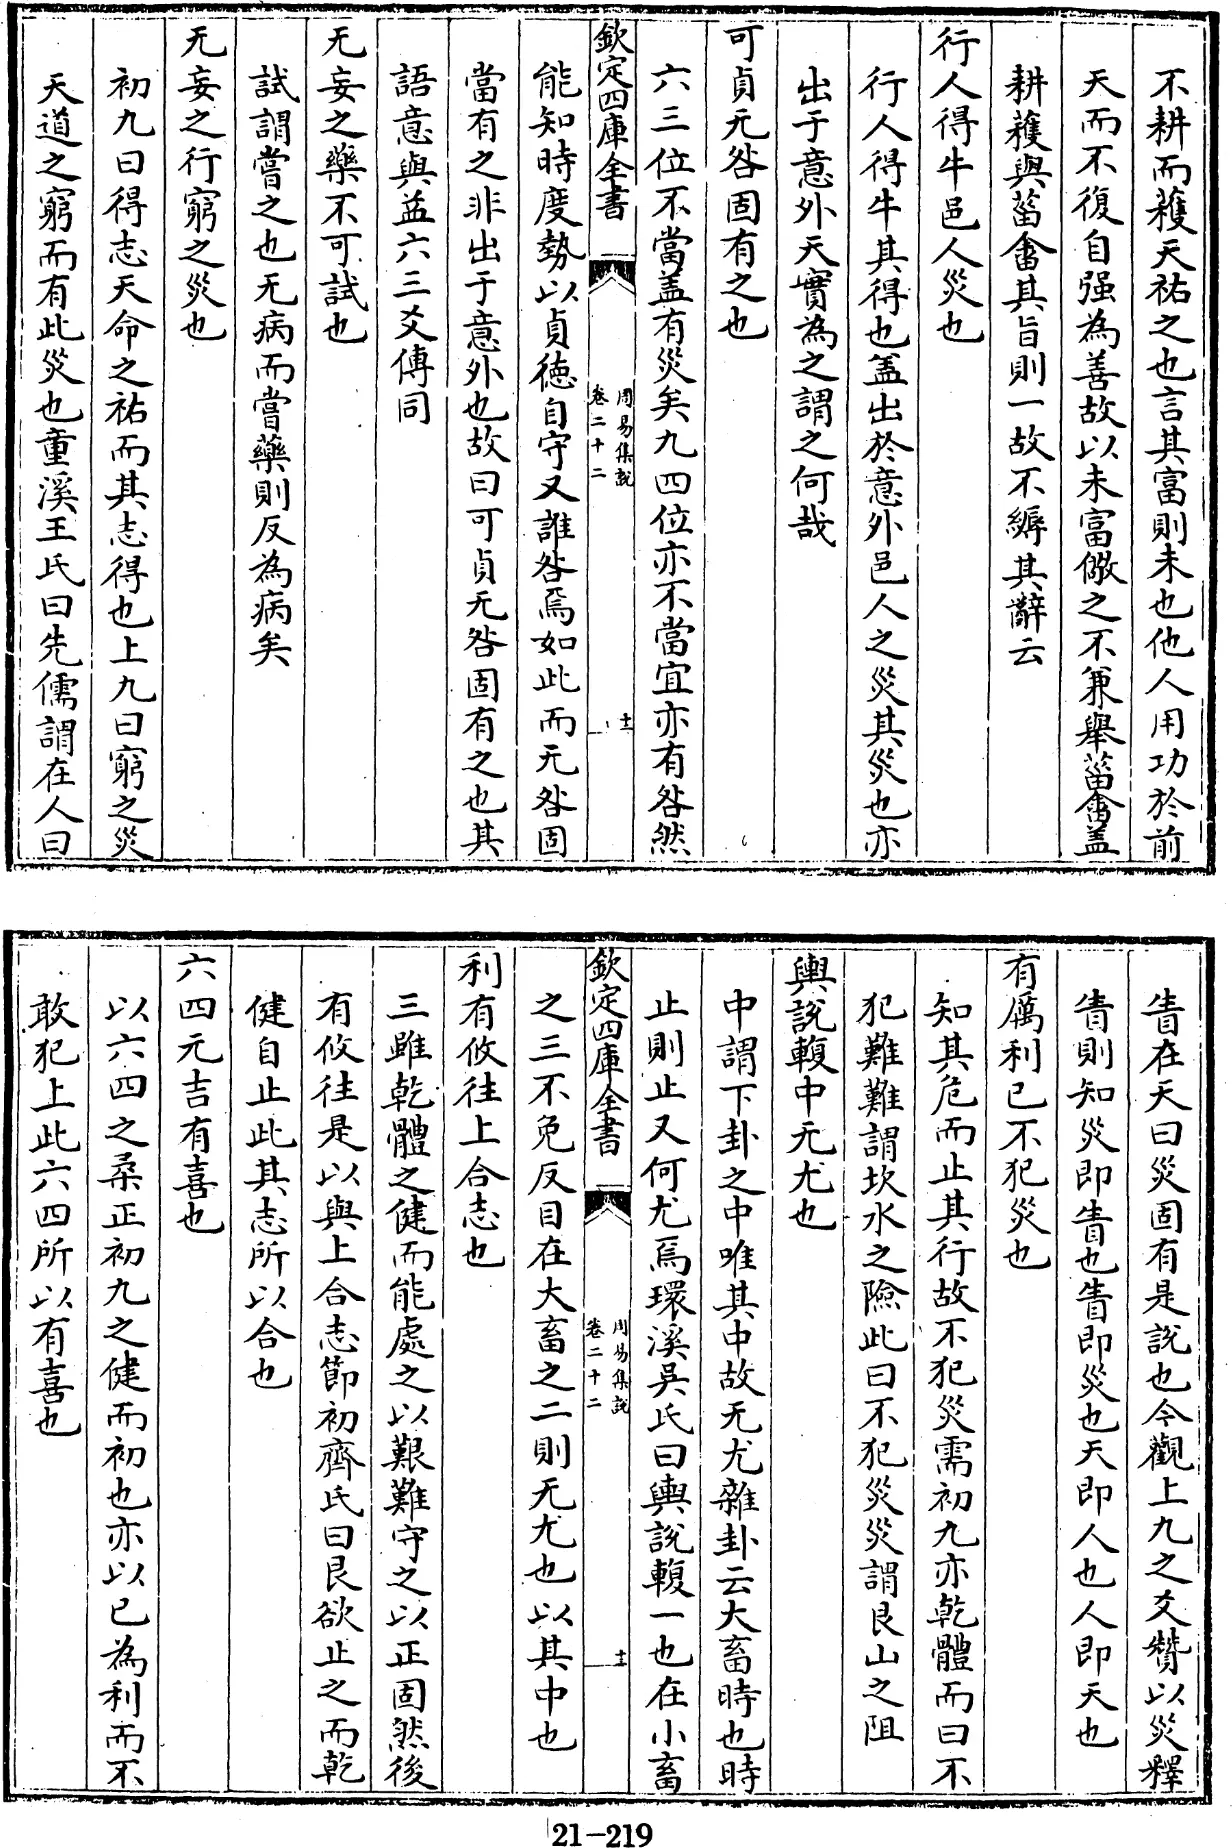 不耕而穫天祐之也言其富則未也他人用功於前
天而不復自强為善故以未富儆之不兼舉菑畬盖
耕穫與菑畬其旨則一故不縟其辭云
行人得牛邑人災也
行人得牛其得也盖出於意外邑人之災其災也亦
出于意外天實為之謂之何哉
可貞无咎固有之也
六三位不當盖有災矣九四位亦不當宜亦有咎然
欽定四庫全書
周易集說
卷二十二
十二
能知時度勢以貞德自守又誰咎焉如此而无咎固
當有之非出于意外也故曰可貞无咎固有之也其
語意與益六三爻傳同
无妄之藥不可試也
試謂嘗之也无病而嘗藥則反為病矣
无妄之行窮之災也
初九曰得志天命之祐而其志得也上九曰窮之災
天道之窮而有此災也童溪王氏曰先儒謂在人曰
眚在天曰災固有是說也今觀上九之爻贊以災釋
眚則知災即眚也眚即災也天即人也人即天也
有厲利已不犯災也
知其危而止其行故不犯災需初九亦乾體而曰不
犯難難謂坎水之險此曰不犯災災謂艮山之阻
輿說輹中无尤也
中謂下卦之中唯其中故无尤雜卦云大畜時也時
止則止又何尤焉環溪吳氏曰輿說輹一也在小畜
欽定四庫全書
周易集說
卷二十二
之三不免反目在大畜之二則无尤也以其中也
利有攸往上合志也
三雖乾體之健而能處之以艱難守之以正固然後
有攸往是以與上合志節初齊氏曰艮欲止之而乾
健自止此其志所以合也
六四元吉有喜也
以六四之柔正初九之健而初也亦以已為利而不
敢犯上此六四所以有喜也
21-219